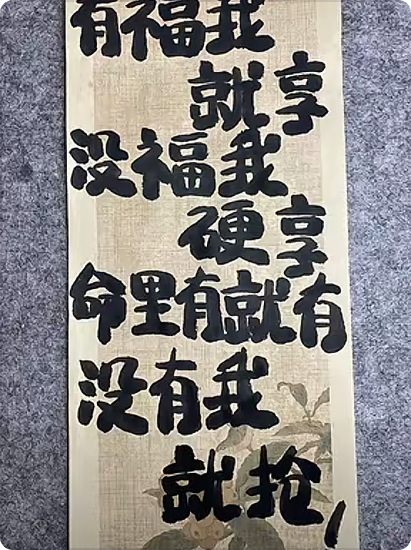 有福我
就享
没福我
硬享
命里有就有
没有我
就抢